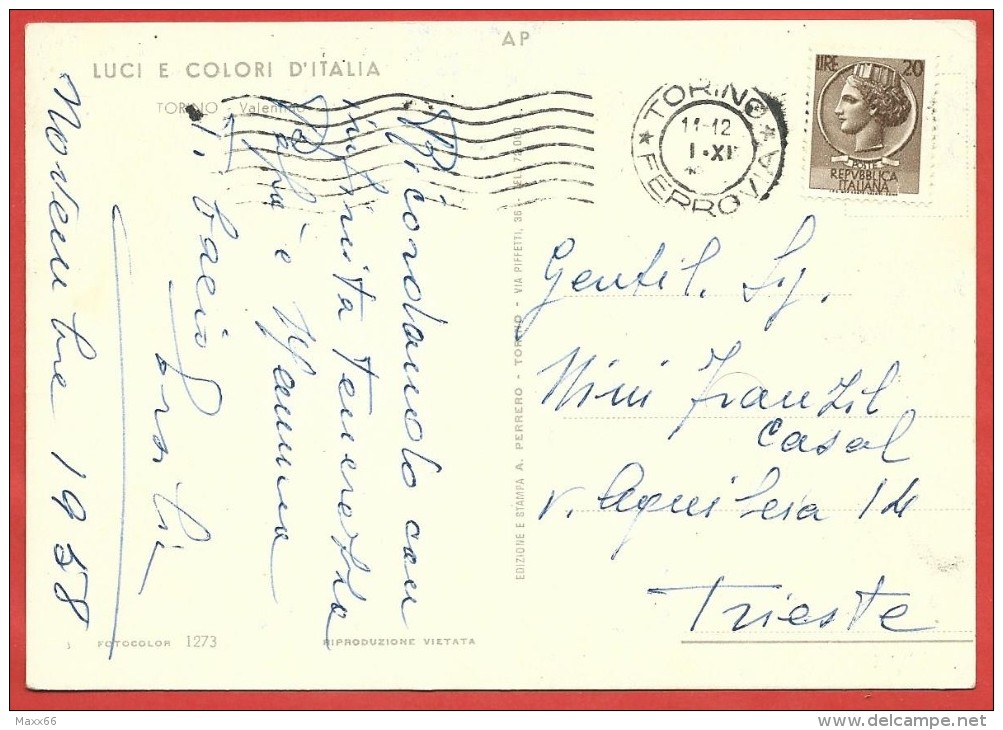 AP
LUCI E COLORI D'ITALIA
TORINO - Valentino
TORINO
FERROVIA
11-12
1•XI
LIRE 20
POSTE
REPVBBLICA
ITALIANA
Ricordandolo con
infinita tenerezza
e Mamma
Novembre 1958
EDIZIONE E STAMPA A. PERRERO - TORINO - VIA PIFFETTI, 36
Gentil. Sg.
Mini Franzil
Casal
v. Aquileia 14
Trieste
FOTOCOLOR 1273
RIPRODUZIONE VIETATA
Maxx66
www.delcampe.net